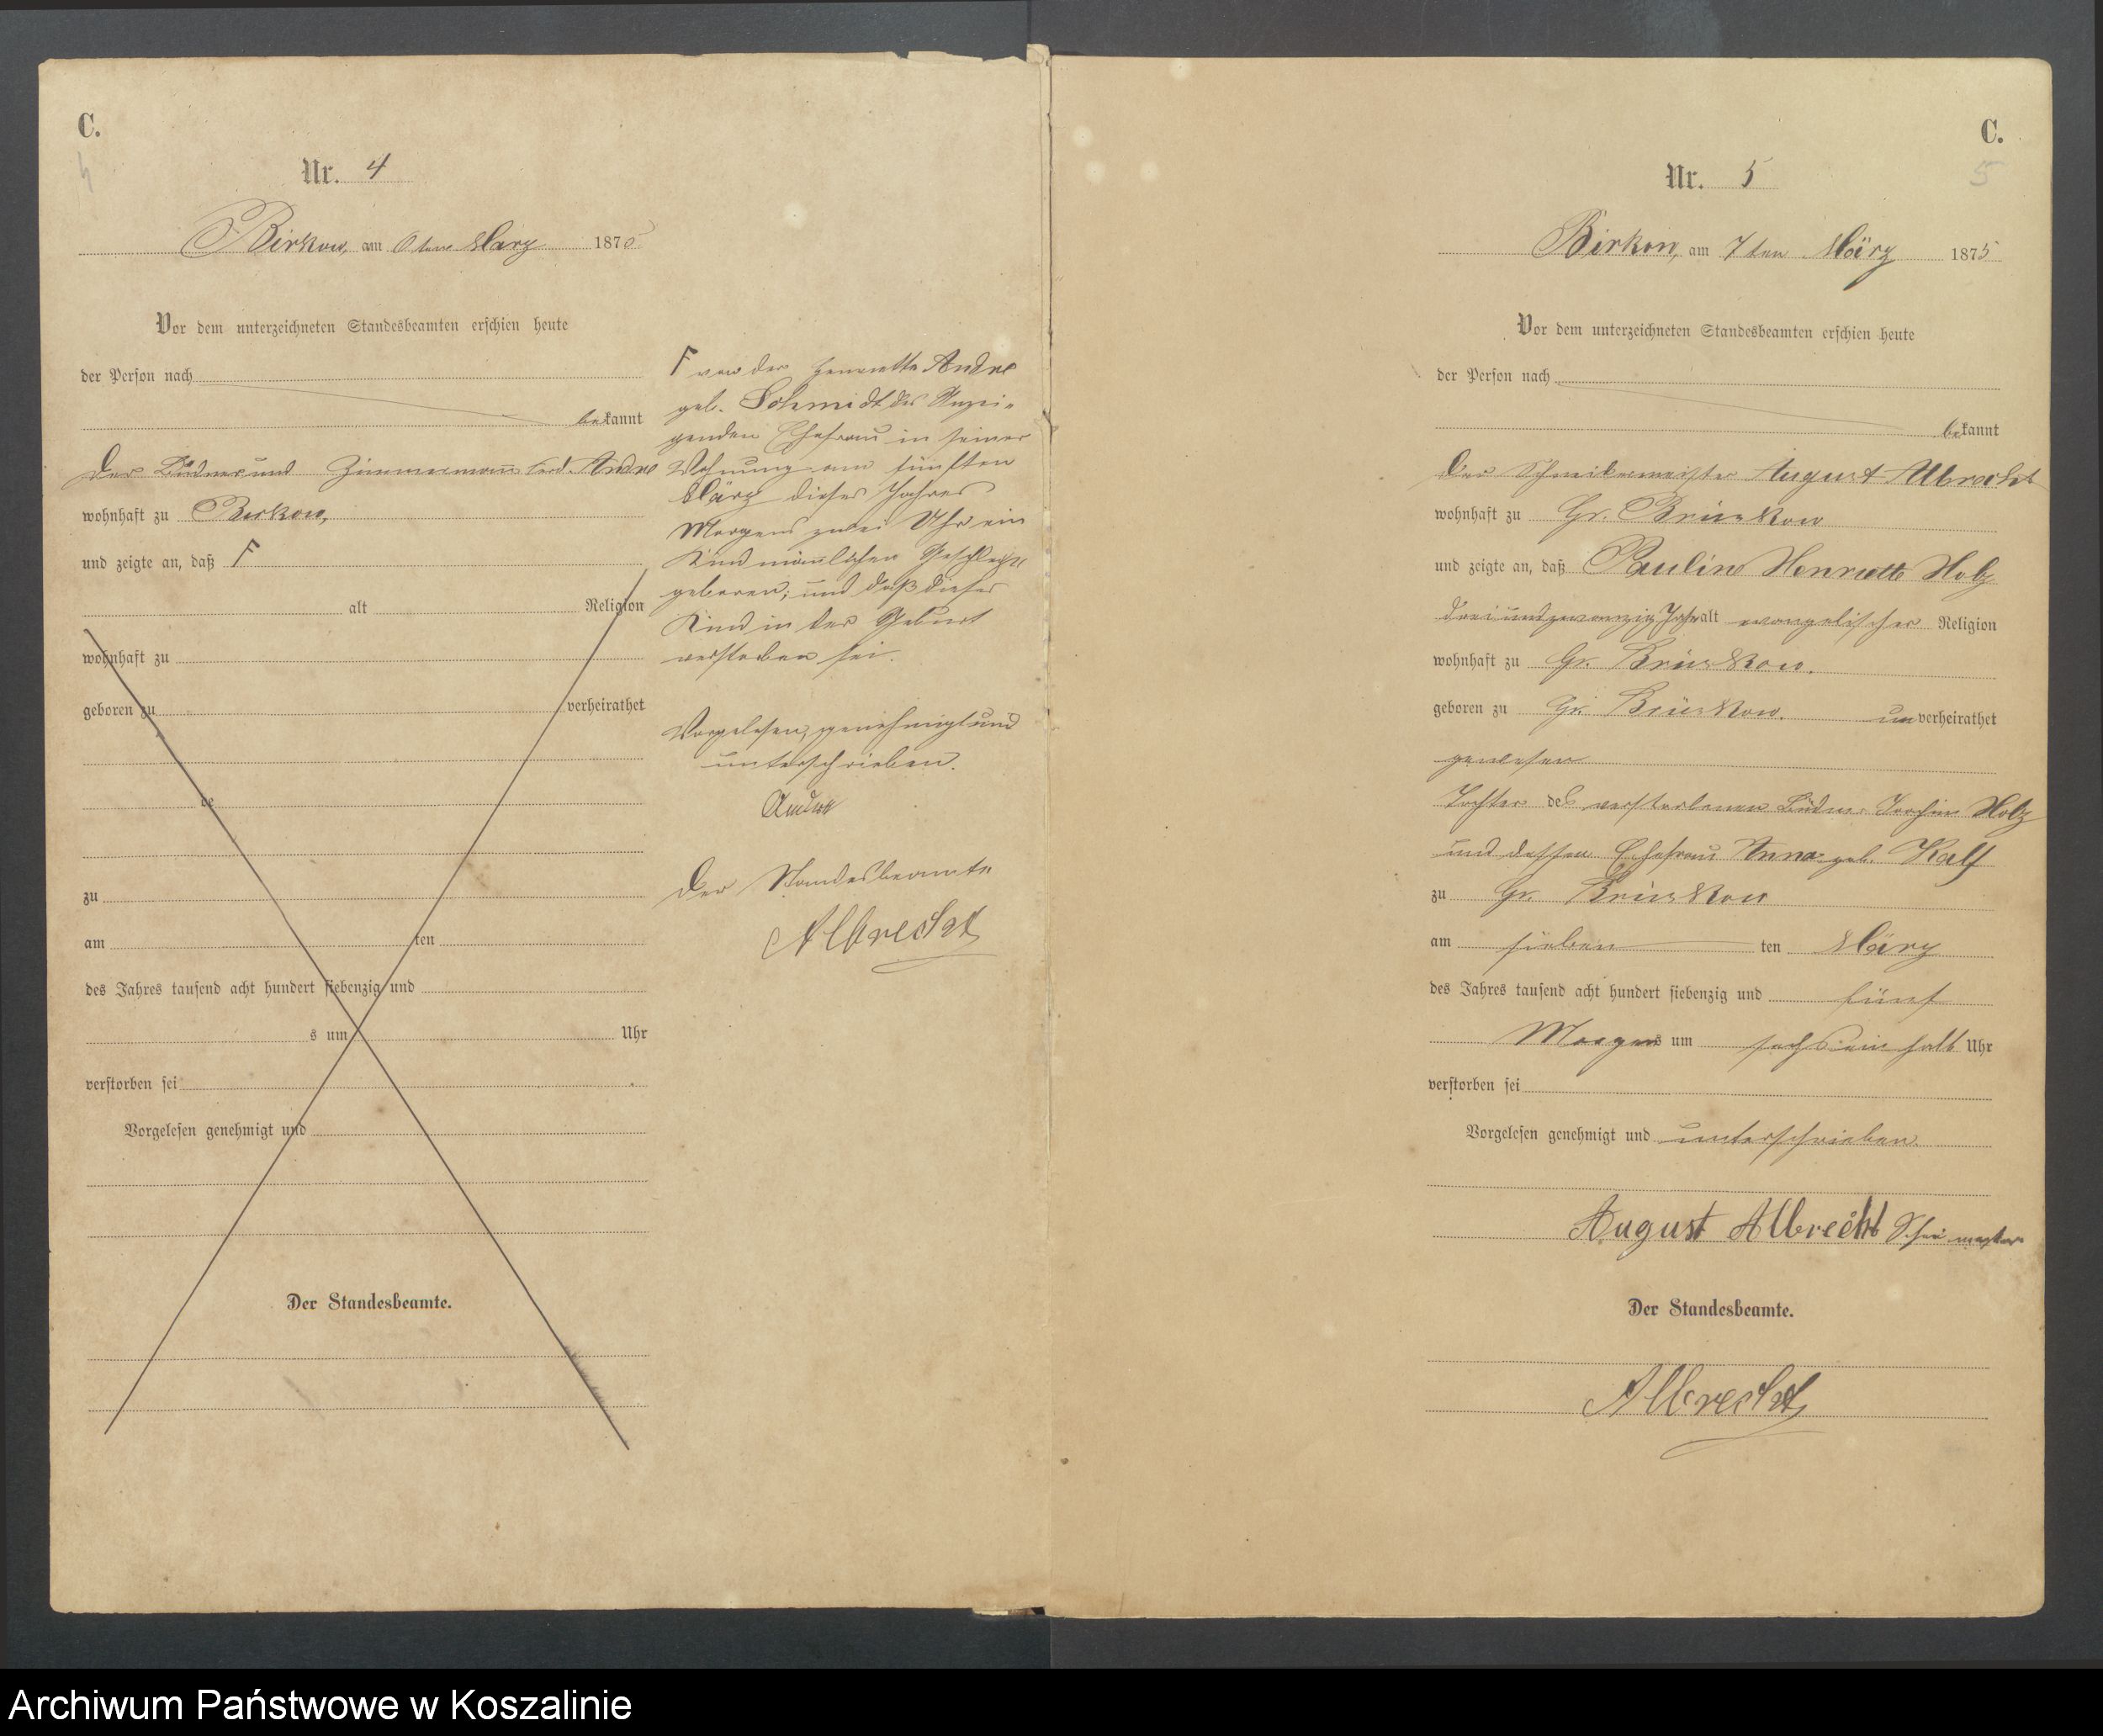 C.
4
Nr. 4
Birkow, am 6ten März 1875
Vor dem unterzeichneten Standesbeamten erschien heute
der Person nach
bekannt
Der Büdner und Zimmermann Ferd. Andre
wohnhaft zu Birkow,
und zeigte an, daß F
alt Religion
wohnhaft zu
geboren zu verheirathet
de
zu
am ten
des Jahres tausend acht hundert siebenzig und
s um Uhr
verstorben sei
Vorgelesen genehmigt und
Der Standesbeamte.
F von der Henriette Andre
geb. Schmidt des Anzei-
genden Ehefrau in seiner
Wohnung am fünften
März dieses Jahres
Morgens zwei Uhr ein
Kind männlichen Geschlechts
geboren; und daß dieses
Kind in der Geburt
verstorben sei.
Vorgelesen, genehmigt und
unterschrieben.
Andre
Der Standesbeamte
Albrecht
C.
5
Nr. 5
Birkow, am 7ten März 1875
Vor dem unterzeichneten Standesbeamten erschien heute
der Person nach
bekannt
Der Schneidermeister August Albrecht
wohnhaft zu Gr. Brüskow
und zeigte an, daß Pauline Henriette Holz
dreiundzwanzig Jahr alt evangelischer Religion
wohnhaft zu Gr. Brüskow.
geboren zu Gr. Brüskow. unverheirathet
gewesen
Tochter des verstorbenen Büdner Joachim Holz
und dessen Ehefrau Anna geb. Kalf
zu Gr. Brüskow
am sieben ten März
des Jahres tausend acht hundert siebenzig und fünf
Morgens um sechs ein halb Uhr
verstorben sei
Vorgelesen genehmigt und unterschrieben.
August Albrecht
Der Standesbeamte.
Albrecht
Archiwum Państwowe w Koszalinie